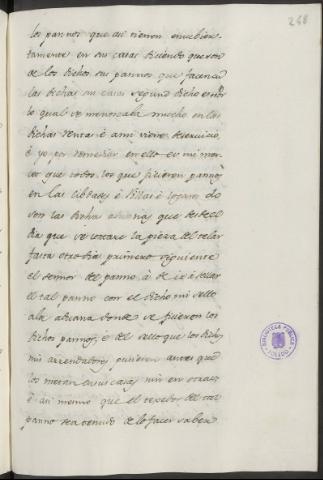 268
los pannos que asi vienen encubier-
tamente en sus casas diciendo que son
de los dichos sus pannos que facen en
las dichas sus casas segund dicho es por
lo qual se menoscaba mucho en las
dichas rentas è ami viene deservicio,
è yo por remediar en ello es mi mer-
ced que todos los que ficieren pannos
en las cibdades è Villas è logares do
son las dichas aduanas que desde el
dia que se cortare la pieza del telar
fasta otro dia primero siguiente
el sennor del panno à de ir à sellar
el tal panno con el dicho mi sello
ala aduana donde se ficieron los
dichos pannos, e del sello que los dichos
mis arrendadores pusieren antes que
los metan en sus casas nin en otras
è asi mesmo que el texedor del tal
panno sea tenudo de lo facer saber
BIBLIOTECA PUBLICA
TOLEDO